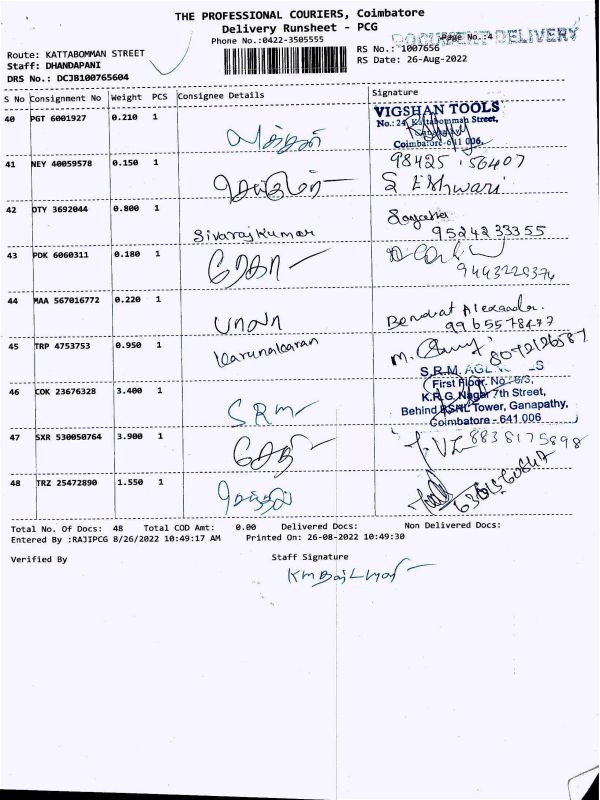 THE PROFESSIONAL COURIERS, Coimbatore
Delivery Runsheet - PCG
Phone No.:0422-3505555
Page No.:4
DOCUMENT DELIVERY
Route: KATTABOMMAN STREET
Staff: DHANDAPANI
DRS No.: DCJB100765604
RS No.: 1007656
RS Date: 26-Aug-2022
S No Consignment No Weight PCS Consignee Details Signature
40 PGT 6001927 0.210 1
VIGSHAN TOOLS
No.: 24, Kattabomman Street,
Ganapathy
Coimbatore-641 006.
41 NEY 40059578 0.150 1
98425 56407
S Eshwari
42 OTY 3692044 0.800 1 Sivarajkumar
9524233355
43 PDK 6060311 0.180 1
9443220374
44 MAA 567016772 0.220 1 பானு
Alexander.
9965578477
45 TRP 4753753 0.950 1 Karunakaran
M.
8072126587
46 COK 23676328 3.400 1 SRM
S.R.M. AGENCIES
First Floor, No: 6/3,
K.R.G. Nagar 7th Street,
Behind BSNL Tower, Ganapathy,
Coimbatore - 641 006
47 SXR 530050764 3.900 1
8838175898
48 TRZ 25472890 1.550 1
Total No. Of Docs: 48 Total COD Amt: 0.00 Delivered Docs: Non Delivered Docs:
Entered By :RAJIPCG 8/26/2022 10:49:17 AM Printed On: 26-08-2022 10:49:30
Verified By Staff Signature